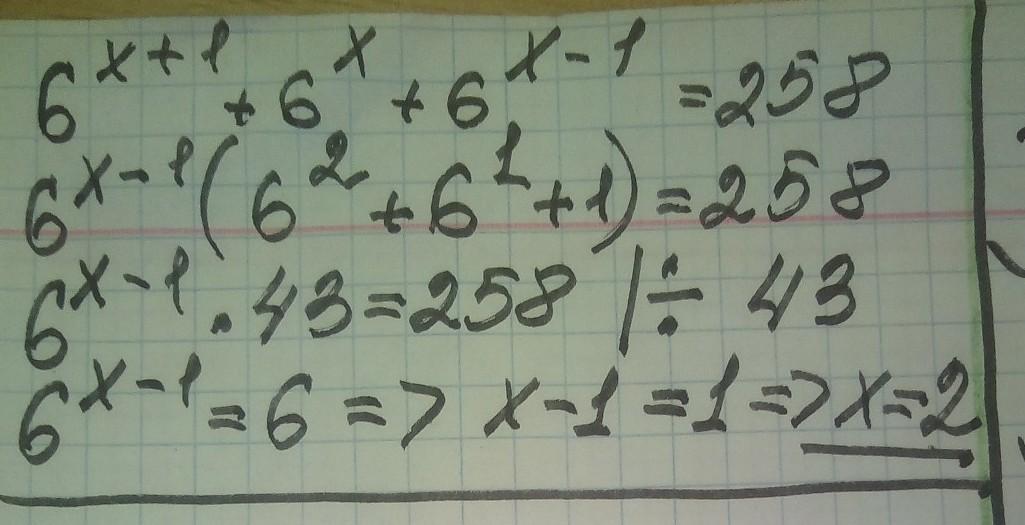 6^{x+1} + 6^{x} + 6^{x-1} = 258
6^{x-1} (6^{2} + 6^{1} + 1) = 258
6^{x-1} . 43 = 258 | ÷ 43
6^{x-1} = 6 => x-1 = 1 => x = 2